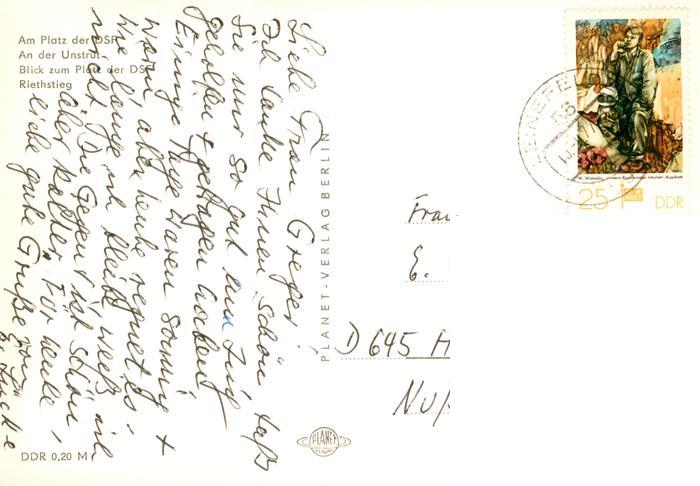 Am Platz der DSF
An der Unstrut
Blick zum Platz der DSF
Riethstieg
Liebe Frau Greger!
Ich danke Ihnen schön, daß
Sie mir so gut am Zug
geholfen + getragen haben!
Einige Tage waren sonnig +
warm, aber heute regnet es.
Wie lange es bleibt weiß ich
nicht. Die Gegend ist schön,
aber kälter. Für heute,
liebe gute Grüße von
PLANET-VERLAG BERLIN
PLANET
DDR 0,20 M
25
DDR
Frau
E.
D 645 H
Nuß